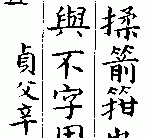 揉箭箝也
與不字用
貞父辛